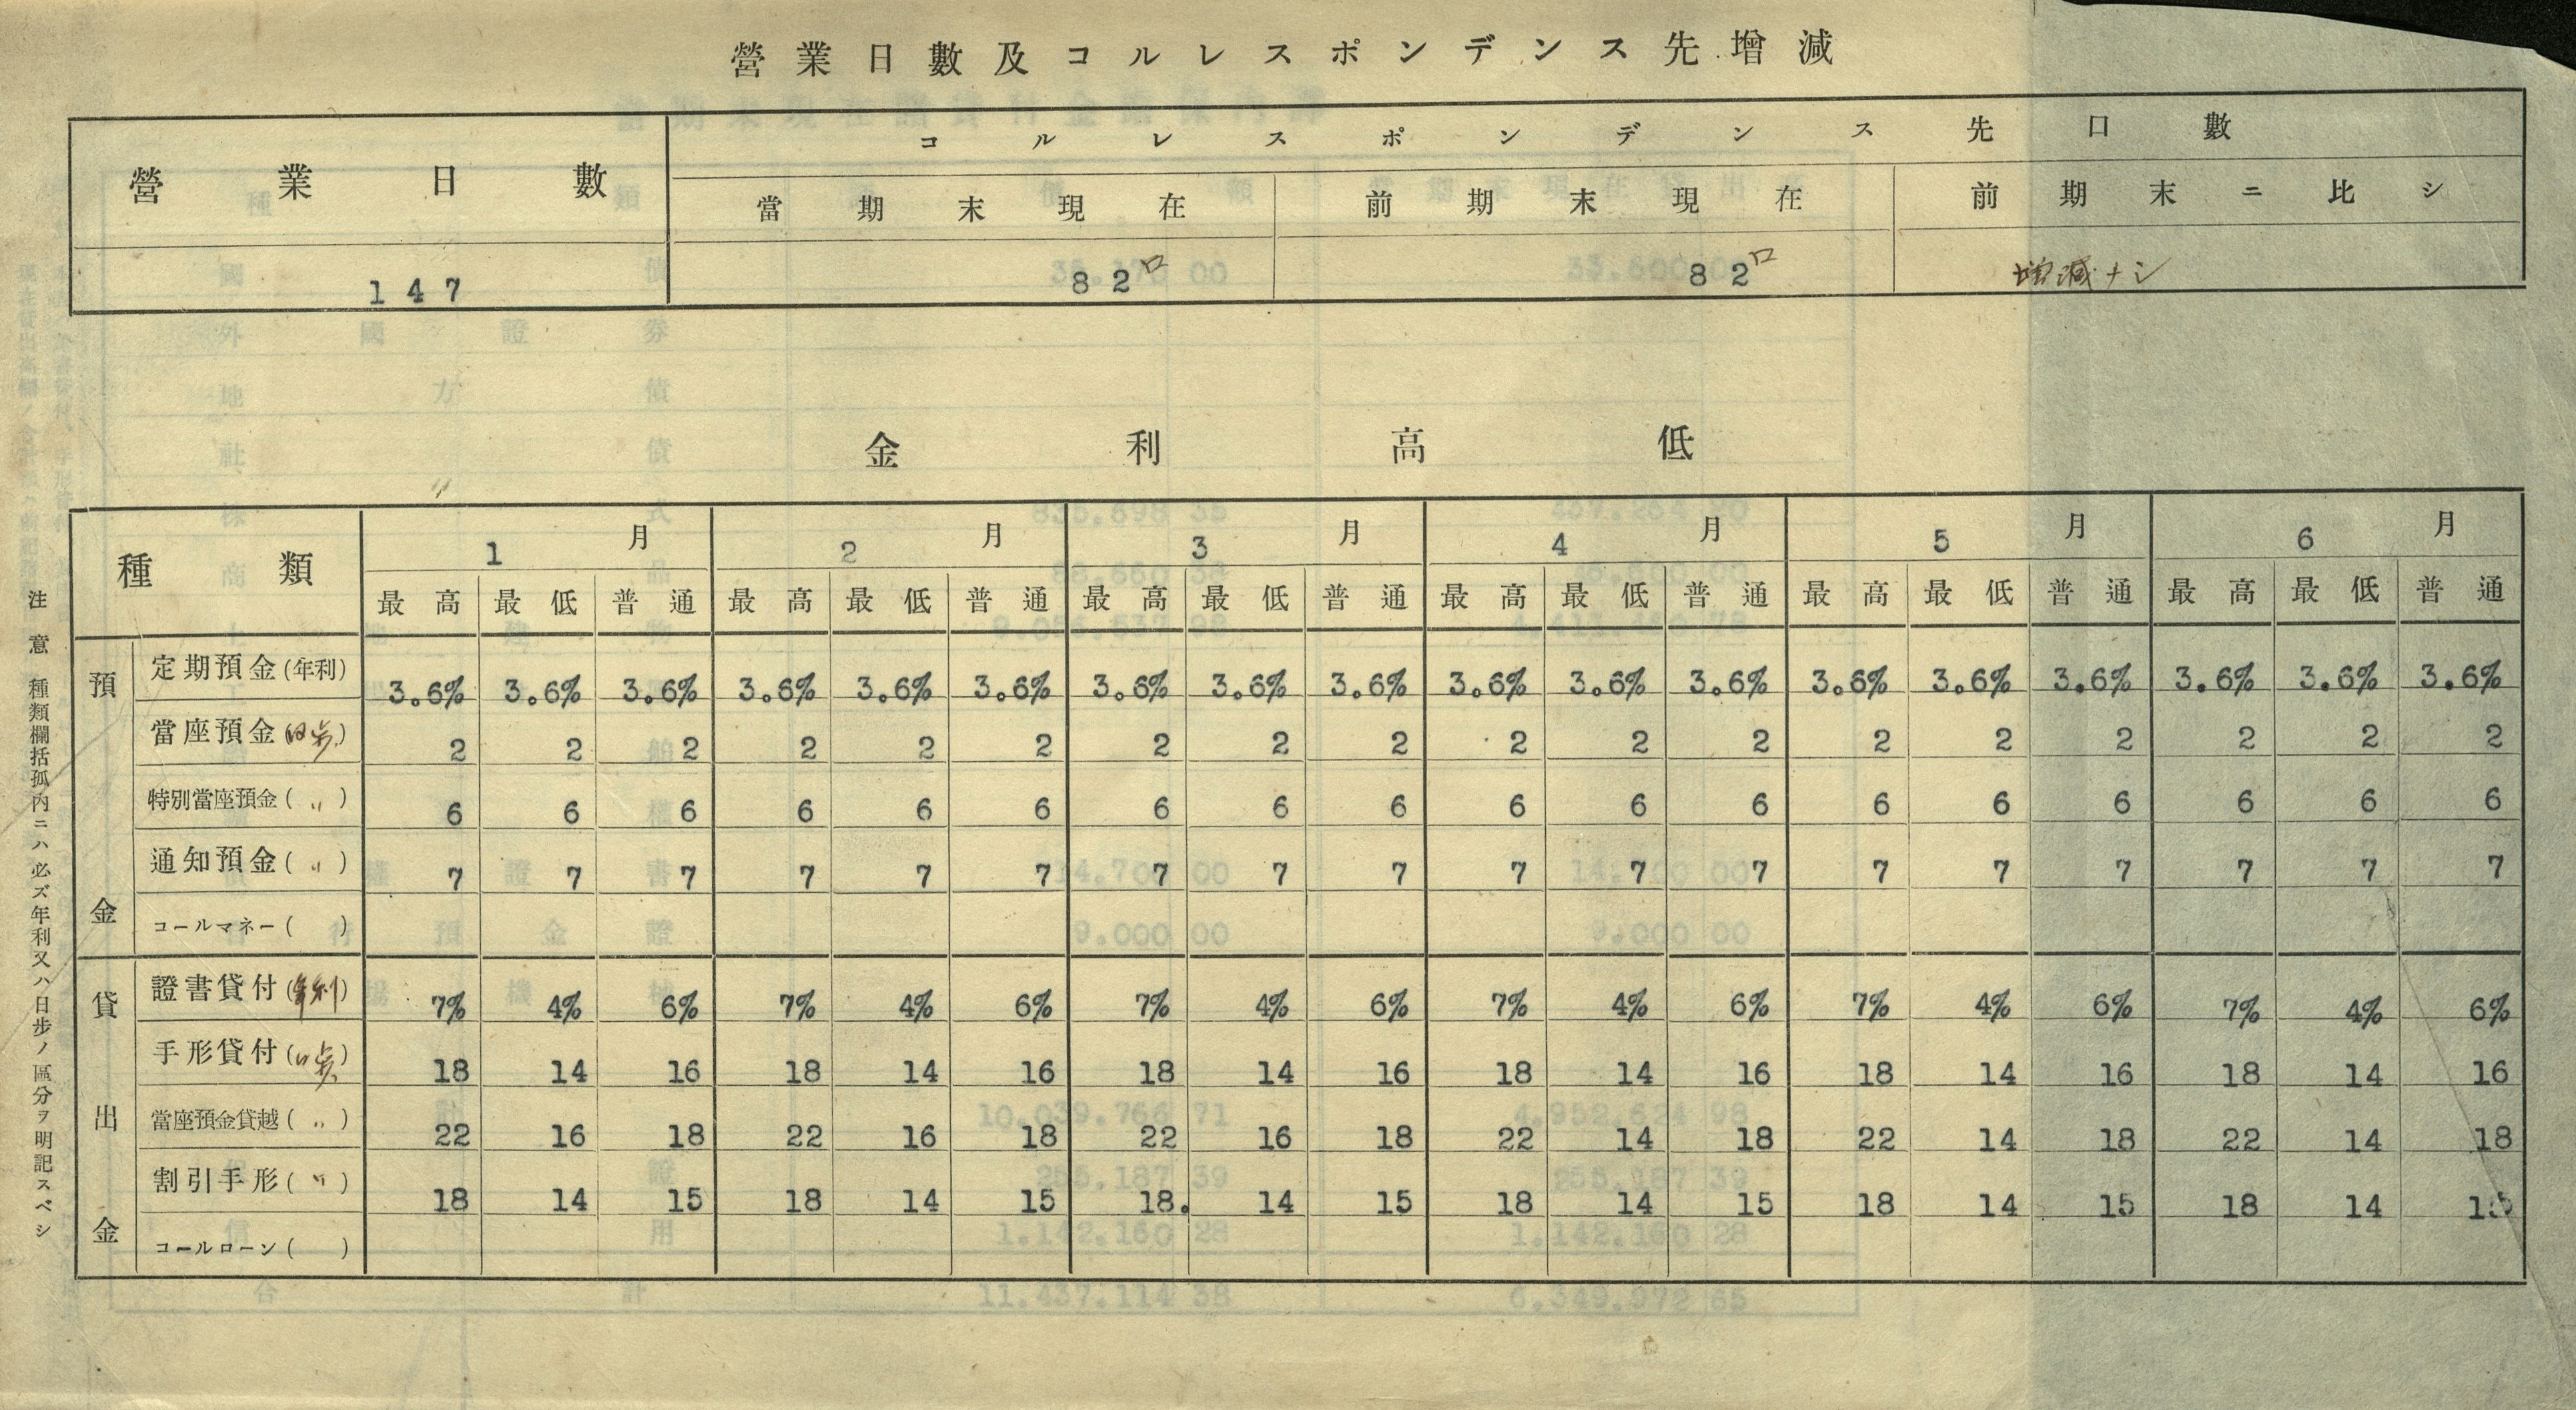 營業日數及コルレスポンデンス先增減
營業日數 コルレスポンデンス先口數
當期末現在 前期末現在 前期末ニ比シ
147 82口 82口 增減ナシ
金利高低
種類 1月 2月 3月 4月 5月 6月
最高 最低 普通 最高 最低 普通 最高 最低 普通 最高 最低 普通 最高 最低 普通 最高 最低 普通
預金
定期預金(年利) 3.6% 3.6% 3.6% 3.6% 3.6% 3.6% 3.6% 3.6% 3.6% 3.6% 3.6% 3.6% 3.6% 3.6% 3.6% 3.6% 3.6% 3.6%
當座預金(日歩) 2 2 2 2 2 2 2 2 2 2 2 2 2 2 2 2 2 2
特別當座預金(〃) 6 6 6 6 6 6 6 6 6 6 6 6 6 6 6 6 6 6
通知預金(〃) 7 7 7 7 7 7 7 7 7 7 7 7 7 7 7 7 7 7
コールマネー( )
貸出金
證書貸付(年利) 7% 4% 6% 7% 4% 6% 7% 4% 6% 7% 4% 6% 7% 4% 6% 7% 4% 6%
手形貸付(日歩) 18 14 16 18 14 16 18 14 16 18 14 16 18 14 16 18 14 16
當座預金貸越(〃) 22 16 18 22 16 18 22 16 18 22 14 18 22 14 18 22 14 18
割引手形(〃) 18 14 15 18 14 15 18. 14 15 18 14 15 18 14 15 18 14 15
コールローン( )
注意 種類欄括孤内ニハ必ズ年利又ハ日歩ノ區分ヲ明記スベシ